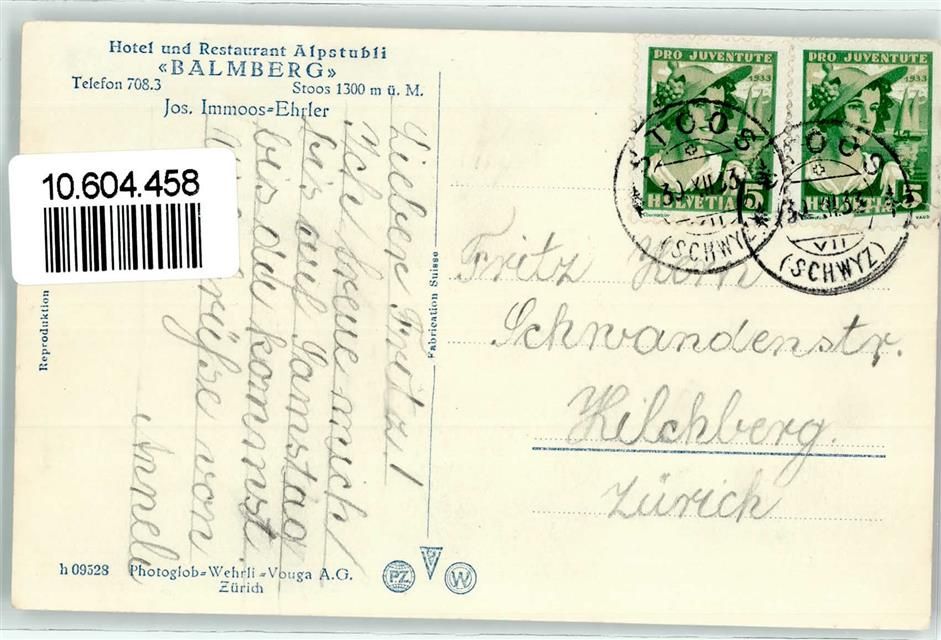 Hotel und Restaurant Alpstubli
«BALMBERG»
Telefon 708.3 Stoos 1300 m ü. M.
Jos. Immoos=Ehrler
10.604.458
Reproduktion
Lieber Fritz!
Ich freue mich
bis auf Samstag
bis du kommst.
Grüsse von
Anneli
Fabrication Suisse
PRO JUVENTUTE
1933
HELVETIA 5
PRO JUVENTUTE
1933
HELVETIA 5
STOOS
30.XII.33
VII
(SCHWYZ)
STOOS
30.XII.33
VII
(SCHWYZ)
Fritz
Schwandenstr.
Kilchberg.
Zürich
h 09528 Photoglob=Wehrli=Vouga A.G.
Zürich
PZ
V
W